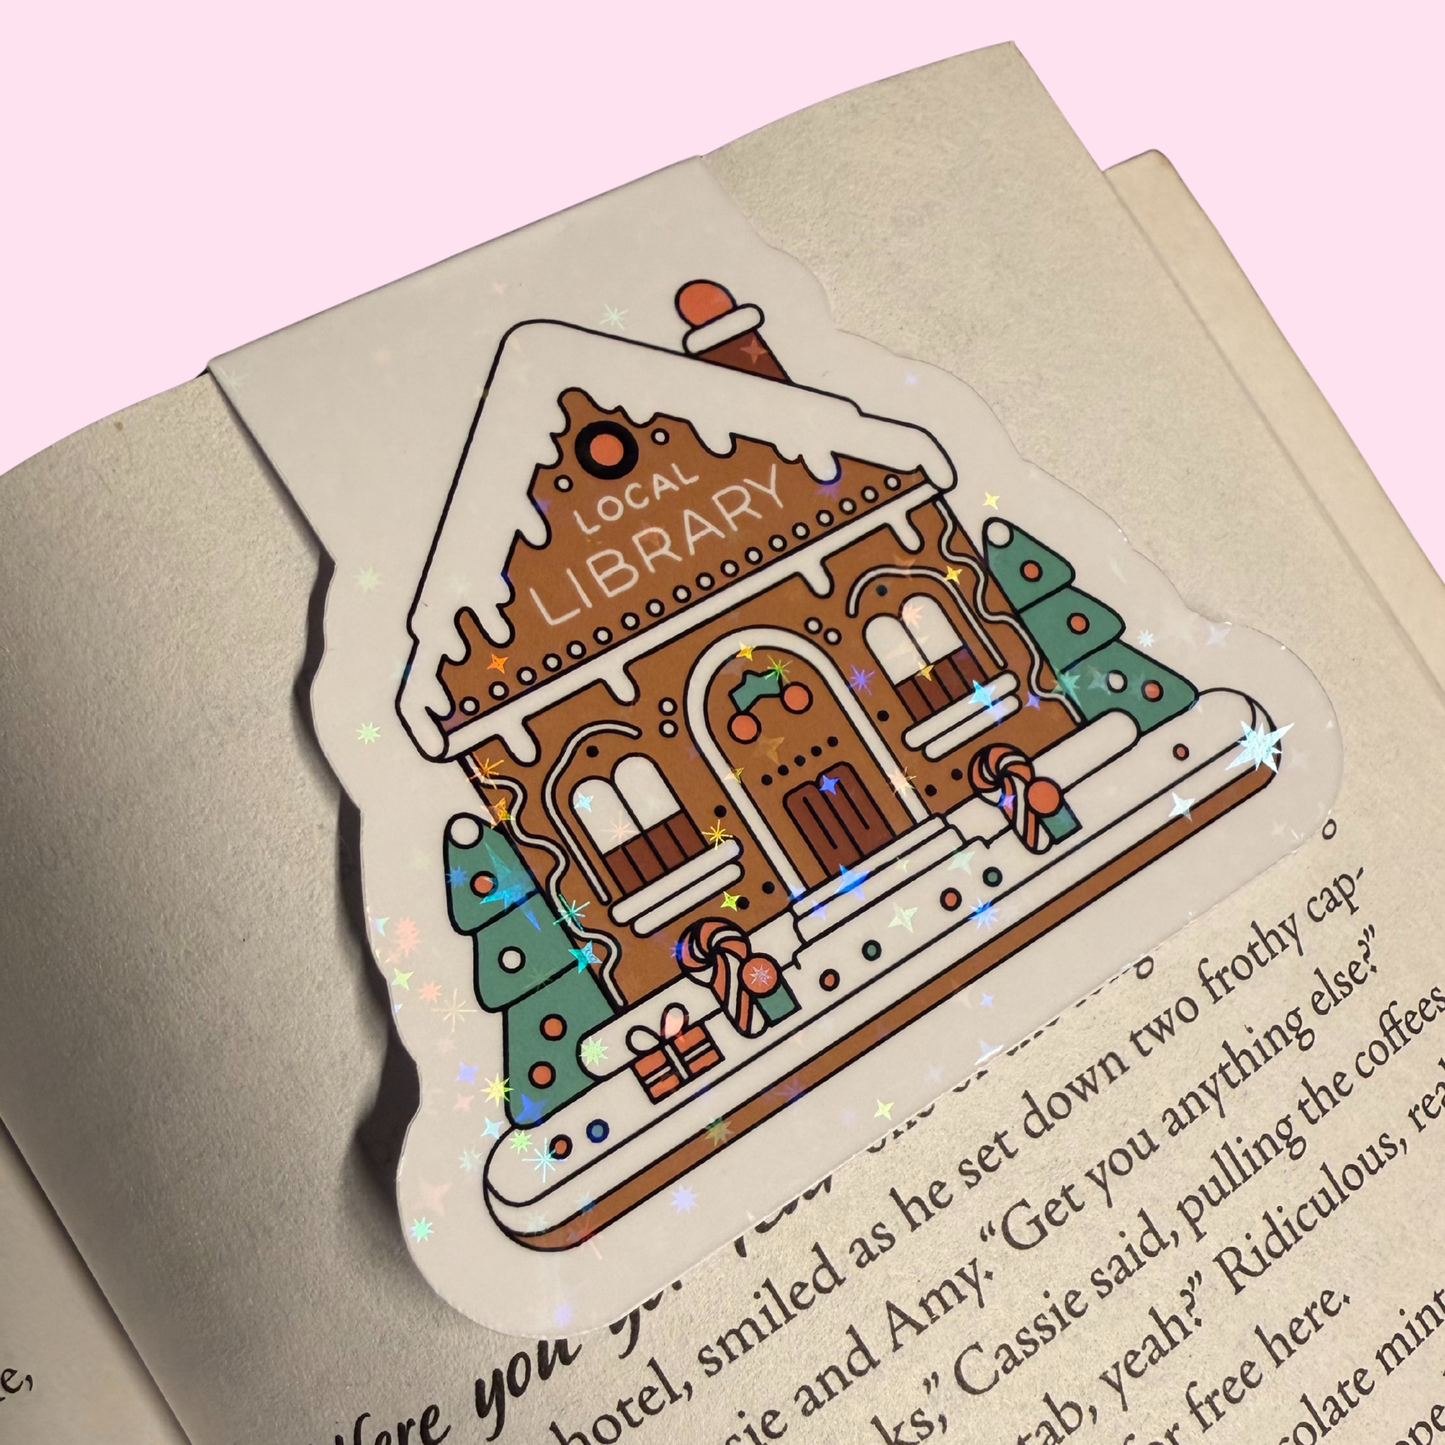 LOCAL
LIBRARY
here you go
hotel, smiled as he set down two frothy cap-
sie and Amy. “Get you anything else?”
ks,” Cassie said, pulling the coffees
tab, yeah?” Ridiculous, rea
or free here.
colate mint
e,